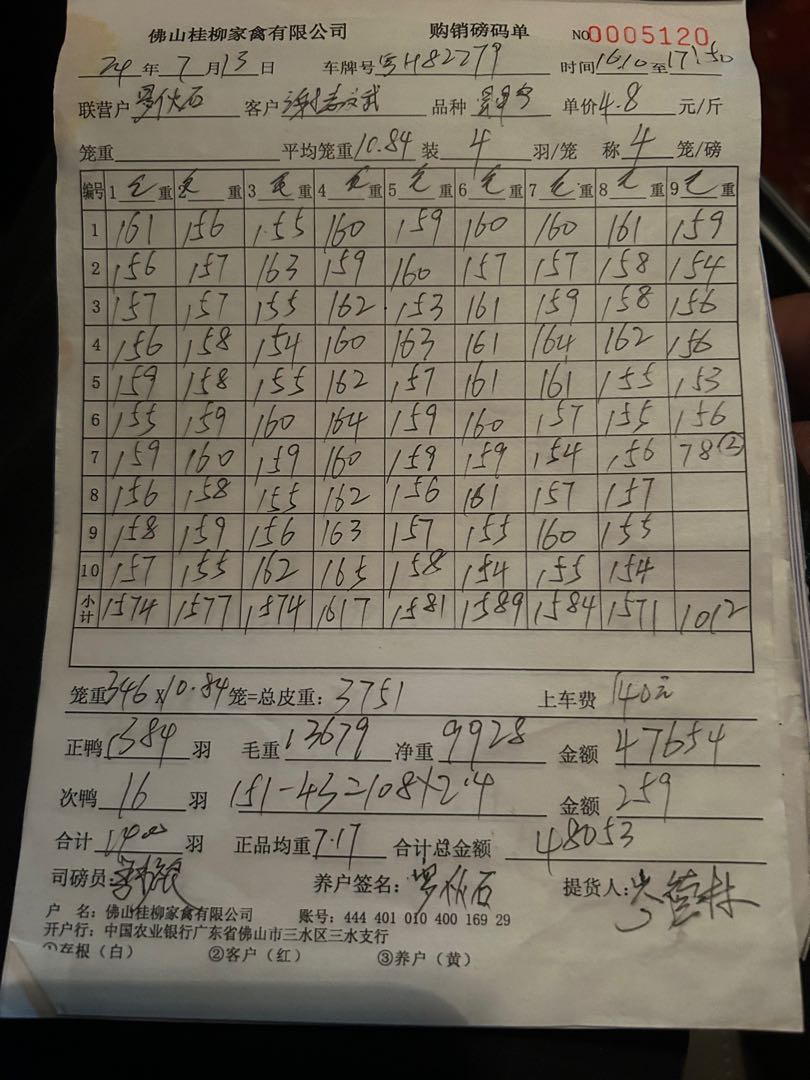 佛山桂柳家禽有限公司 购销磅码单 NO0005120
24年7月13日 车牌号粤H82279 时间1610至1750
联营户罗伙石 客户 品种 单价4.8元/斤
笼重 平均笼重10.84装4羽/笼 称4笼/磅
编号 1毛重 2毛重 3毛重 4毛重 5毛重 6毛重 7毛重 8毛重 9毛重
1 161 156 155 160 159 160 160 161 159
2 156 157 163 159 160 157 157 158 154
3 157 157 155 162 153 161 159 158 156
4 156 158 154 160 163 161 164 162 156
5 159 158 155 162 157 161 161 155 153
6 155 159 160 164 159 160 157 155 156
7 159 160 159 160 159 159 154 156 78②
8 156 158 155 162 156 161 157 157
9 158 159 156 163 157 155 160 155
10 157 155 162 165 158 154 155 154
小计 1574 1577 1574 1617 1581 1589 1584 1571 1012
笼重346×10.84笼=总皮重:3751 上车费140元
正鸭1384羽 毛重13679净重9928 金额47654
次鸭16羽 151-43=108×2.4 金额259
合计1400羽 正品均重7.17 合计总金额48053
司磅员: 养户签名:罗伙石 提货人:
户 名:佛山桂柳家禽有限公司 账号:444 401 010 400 169 29
开户行:中国农业银行广东省佛山市三水区三水支行
①存根(白) ②客户(红) ③养户(黄)